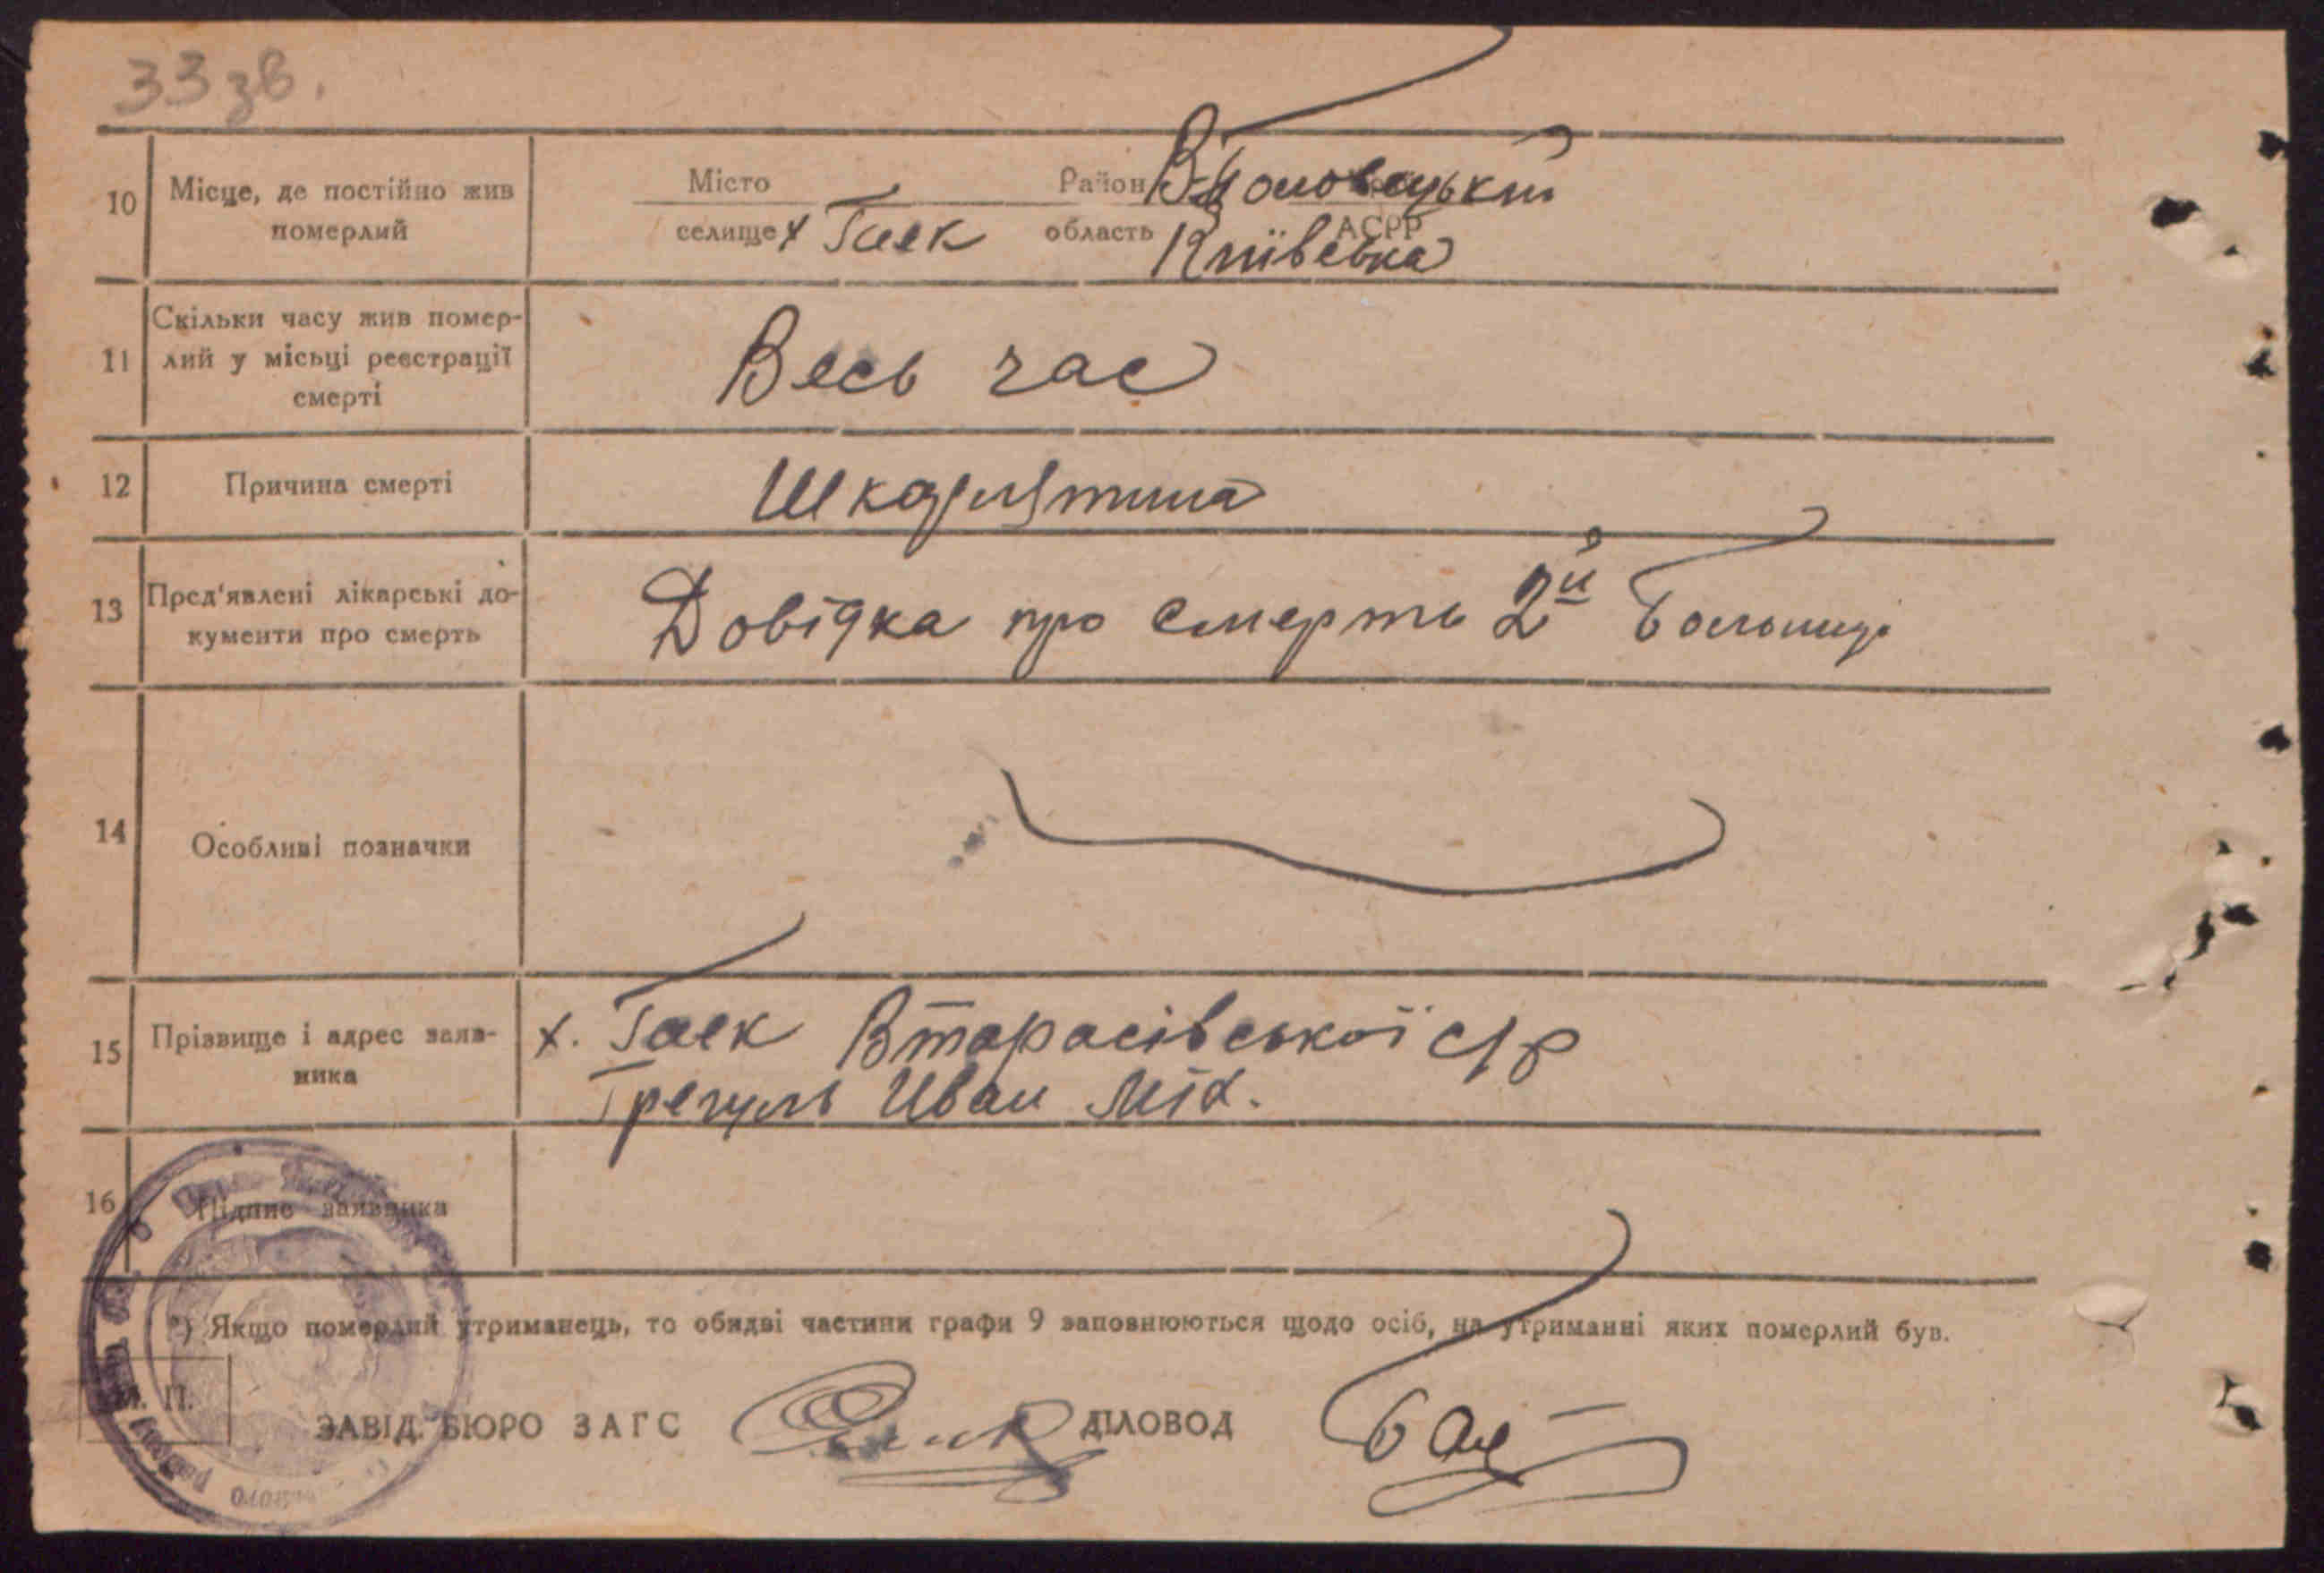 33 зв.
10 Місце, де постійно жив померлий
Місто Район В-Половецький
селище х Гаек область АСРР
Київська
11 Скільки часу жив помер-
лий у місьці реєстрації
смерті
Весь час
12 Причина смерті Шкарлятина
13 Пред'явлені лікарські до-
кументи про смерть
Довідка про смерть 2й больниці
14 Особливі позначки
15 Прізвище і адрес заяв-
ника
х. Гаек Втарасівської с/р
Грегуль Иван Мих.
16 Підпис заявника
*) Якщо померлий утриманець, то обидві частини графи 9 заповнюються щодо осіб, на утриманні яких померлий був.
М. П.
ЗАВІД. БЮРО ЗАГС ДІЛОВОД